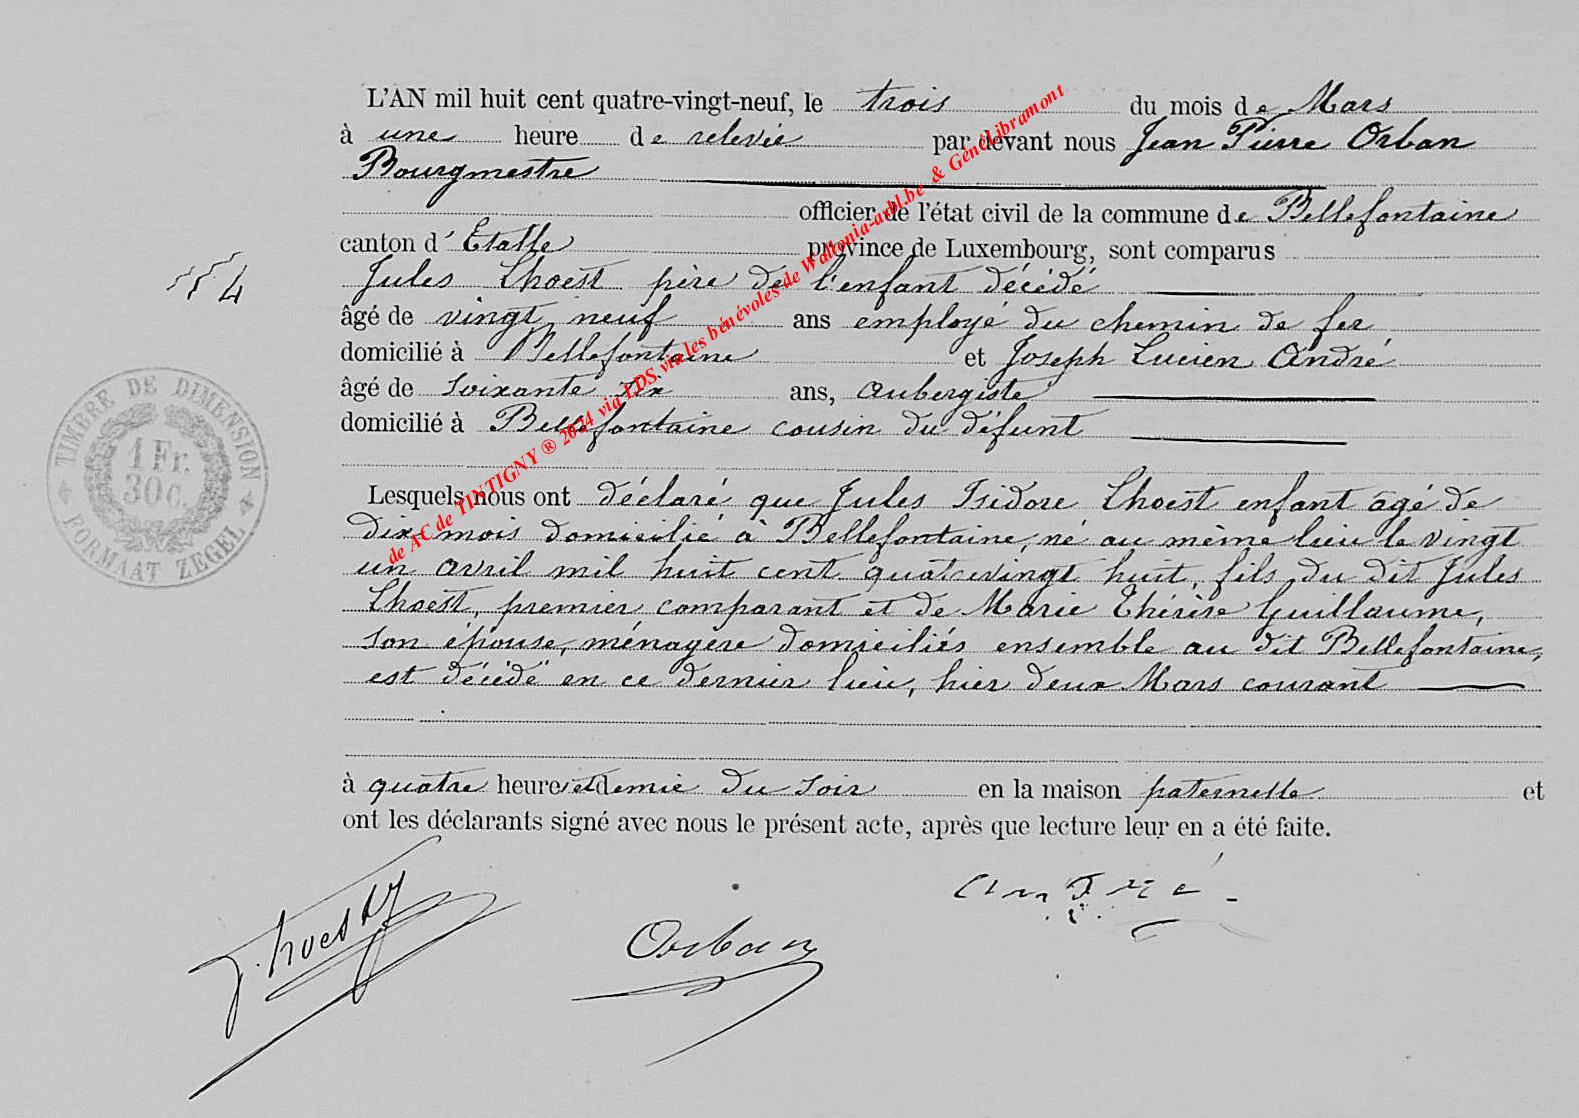 L'AN mil huit cent quatre-vingt-neuf, le trois du mois de Mars
à une heure de relevée par devant nous Jean Pierre Orban
Bourgmestre
officier de l'état civil de la commune de Bellefontaine
canton d'Etalle province de Luxembourg, sont comparus
Jules Lhoest père de l'enfant décédé
âgé de vingt neuf ans employé du chemin de fer
domicilié à Bellefontaine et Joseph Lucien André
âgé de soixante ans, aubergiste
domicilié à Bellefontaine cousin du défunt
Lesquels nous ont déclaré que Jules Isidore Lhoest enfant agé de
dix mois domicilié à Bellefontaine, né au même lieu le vingt
un avril mil huit cent quatrevingt huit, fils du dit Jules
Lhoest, premier comparant et de Marie Thérèse Guillaume,
son épouse, ménagère domiciliés ensemble au dit Bellefontaine,
est décédé en ce dernier lieu, hier deux Mars courant
à quatre heures et demie du soir en la maison paternelle et
ont les déclarants signé avec nous le présent acte, après que lecture leur en a été faite.
J. Lhoest
Orban
André
4
TIMBRE DE DIMENSION
1 Fr.
30 c.
FORMAAT ZEGEL
de AC de TINTIGNY ® 2024 via LDS via les bénévoles de Wallonia-asbl.be & GénéLibramont